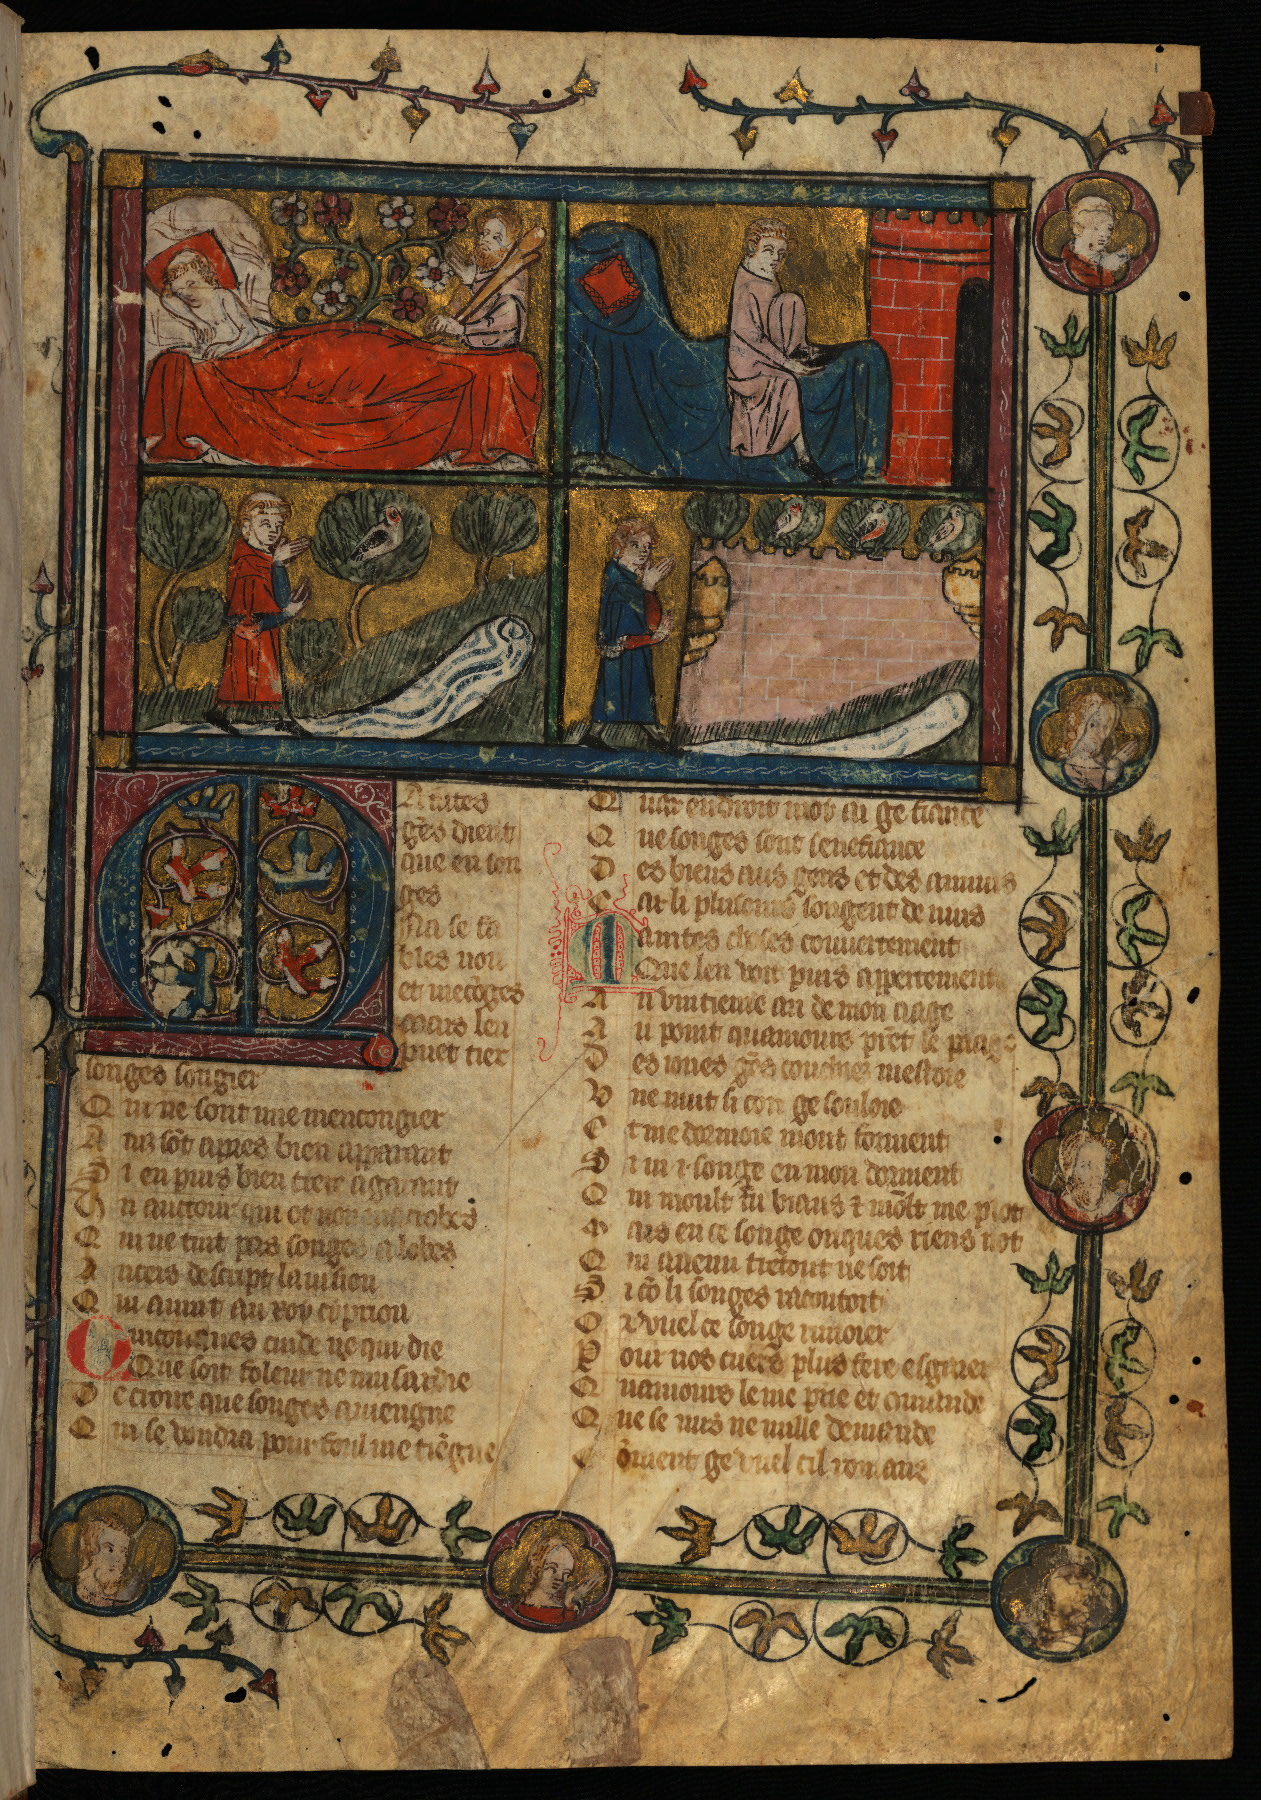 Maintes
gẽs dient
que en son
ges
Na se fa
bles non
et mẽcõges
mais len
puet tiex
songes songier
Qui ne sont mie mencongier
Ains sõt apres bien apparant
Si en puis bien trere a garant
Un auctour qui ot non macrobes
Qui ne tint pas songes a lobes
Aincis descript la uision
Qui auint au roy cyprion
Quiconques cuide ne qui die
Que soit foleur ne musardie
De croire que songes auiengne
Qui se voudra pour foul me tiẽgne
Quar endroit moy ai ge fiance
Que songes sont senefiance
Des biens aus gens et des annuis
Car li plusours songent de nuis
Maintes choses couuertement
Que len voit puis appertement
Au vintieme an de mon aage
Au point quamours prẽt le paage
Des iones gẽs couchiez mestoie
Une nuit si con ge souloie
Et me dormoie mout forment
Si ui .i. songe en mon dorment
Qui moult fu biaus & mõlt me plot
Mais en ce songe onques riens not
Qui auenu tretout ne soit
Si cõ li songes racontoit
Or vuel ce songe rimoier
Pour nos cuers plus fere esgaier
Quamours le me prie et cõmande
Et se nus ne nulle demande
Cõment ge vuel cil romans